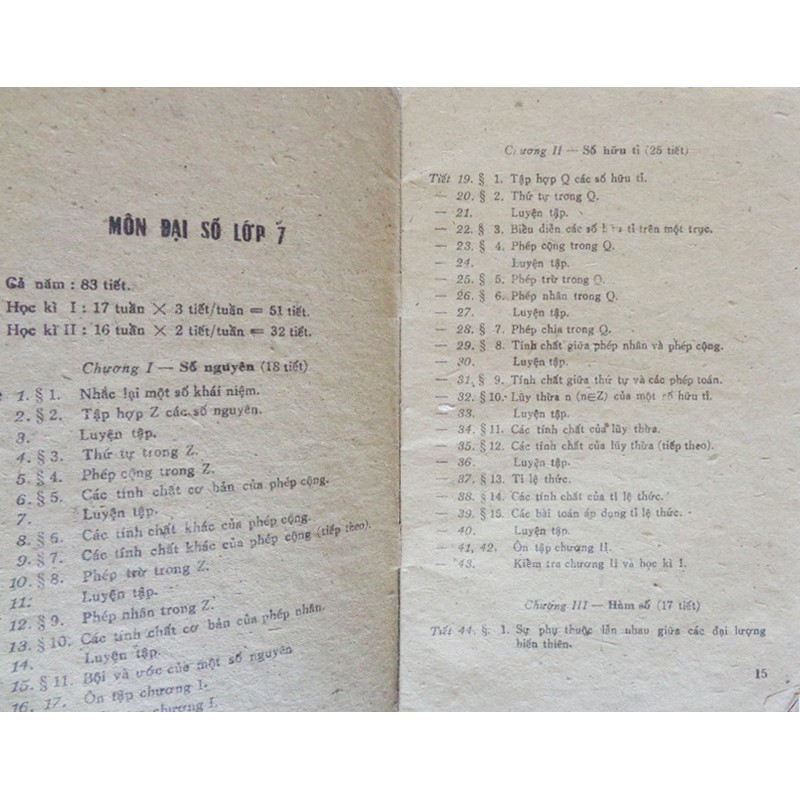 MÔN ĐẠI SỐ LỚP 7
Cả năm : 83 tiết.
Học kì I : 17 tuần × 3 tiết/tuần = 51 tiết.
Học kì II : 16 tuần × 2 tiết/tuần = 32 tiết.
Chương I — Số nguyên (18 tiết)
1. § 1. Nhắc lại một số khái niệm.
2. § 2. Tập hợp Z các số nguyên.
3. Luyện tập.
4. § 3. Thứ tự trong Z.
5. § 4. Phép cộng trong Z.
6. § 5. Các tính chất cơ bản của phép cộng.
7. Luyện tập.
8. § 6. Các tính chất khác của phép cộng.
9. § 7. Các tính chất khác của phép cộng (tiếp theo).
10. § 8. Phép trừ trong Z.
11. Luyện tập.
12. § 9. Phép nhân trong Z.
13. § 10. Các tính chất cơ bản của phép nhân.
14. Luyện tập.
15. § 11. Bội và ước của một số nguyên
16. 17. Ôn tập chương I.
chương I.
Chương II — Số hữu tỉ (25 tiết)
Tiết 19. § 1. Tập hợp Q các số hữu tỉ.
— 20. § 2. Thứ tự trong Q.
— 21. Luyện tập.
— 22. § 3. Biểu diễn các số hữu tỉ trên một trục.
— 23. § 4. Phép cộng trong Q.
— 24. Luyện tập.
— 25. § 5. Phép trừ trong Q.
— 26. § 6. Phép nhân trong Q.
— 27. Luyện tập.
— 28. § 7. Phép chia trong Q.
— 29. § 8. Tính chất giữa phép nhân và phép cộng.
— 30. Luyện tập.
— 31. § 9. Tính chất giữa thứ tự và các phép toán.
— 32. § 10. Lũy thừa n (n∈Z) của một số hữu tỉ.
— 33. Luyện tập.
— 34. § 11. Các tính chất của lũy thừa.
— 35. § 12. Các tính chất của lũy thừa (tiếp theo).
— 36. Luyện tập.
— 37. § 13. Tỉ lệ thức.
— 38. § 14. Các tính chất của tỉ lệ thức.
— 39. § 15. Các bài toán áp dụng tỉ lệ thức.
— 40. Luyện tập.
— 41, 42. Ôn tập chương II.
— 43. Kiểm tra chương II và học kì I.
Chương III — Hàm số (17 tiết)
Tiết 44. §. 1. Sự phụ thuộc lẫn nhau giữa các đại lượng
biến thiên.
15